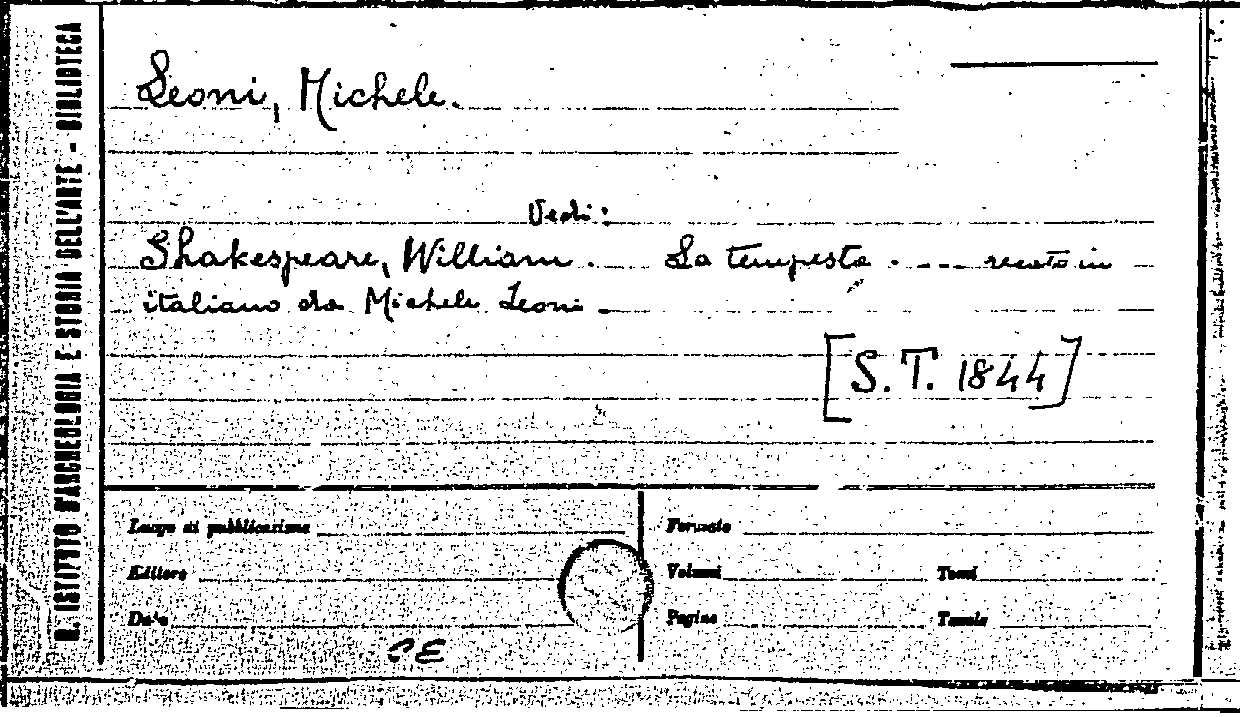 R. ISTITUTO D'ARCHEOLOGIA E STORIA DELL'ARTE - BIBLIOTECA
Leoni, Michele.
Vedi:
Shakespeare, William. La tempesta . - - - recata in
italiano da Michele Leoni
[S. T. 1844]
Luogo di pubblicazione
Formato
Editore
Volumi
Tomi
Data
Pagine
Tavole
CE